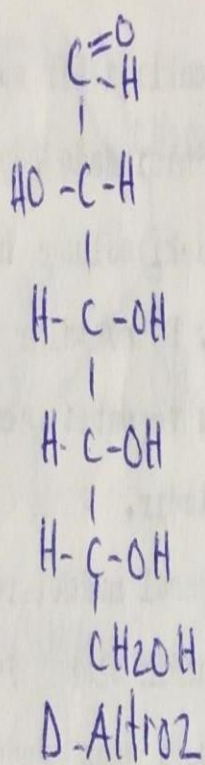 C=O
-H
HO-C-H
H-C-OH
H-C-OH
H-C-OH
CH2OH
D-Altroz